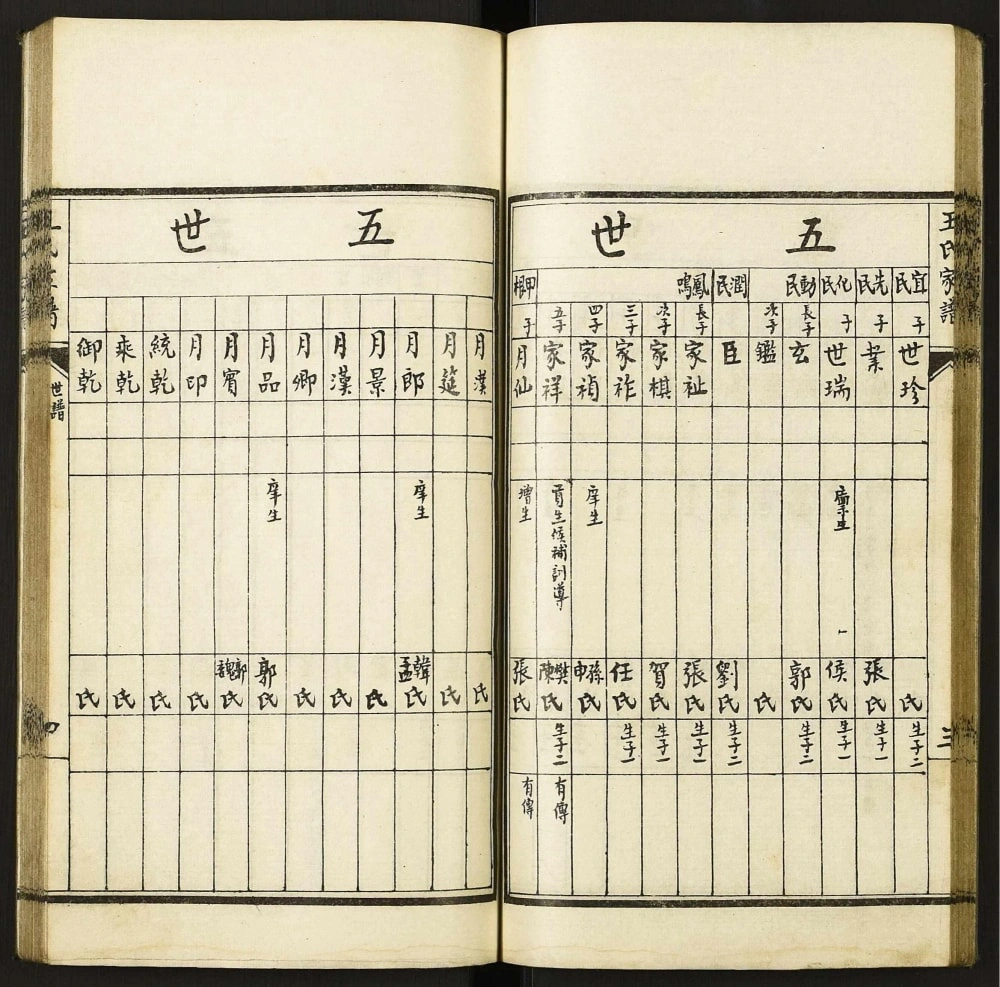 王氏家譜
三
五世
宜民 子 世珍 氏 生子二
先民 子 業 張氏 生子一
化民 子 世瑞 廩生 侯氏 生子一
動民 長子 玄 郭氏 生子二
次子 鑑 氏
潤民 臣 劉氏 生子二
鳳鳴 長子 家祉 張氏 生子一
次子 家棋 賀氏 生子一
三子 家祚 任氏 生子一
四子 家禎 庠生 孫申氏
五子 家祥 貢生候補訓導 樊陳氏 生子二 有傳
甲根 子 月仙 增生 張氏 有傳
五世
月漢 氏
月筵 氏
月郎 庠生 韓孟氏
月景 氏
月漢 氏
月卿 氏
月品 庠生 郭氏
月賓 郭魏氏
月印 氏
統乾 氏
乘乾 氏
御乾 氏
世譜
四